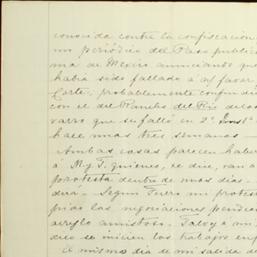 conocida contra la confiscación
un periódico del Paso public
ma de Mexico anunciando que
había sido fallado á mi favor
Corte, probablemente confundi
con el del Rancho del Rio de los
varro que se falló en 2ª Inst
hace unas tres semanas
Ambas cosas parecen haber
á M. y T. quienes, se dice, van a
protesta dentro de unos dias.
drá. Segun Turra mi protes
pias las negociaciones pendien
arreglo amistoso. Talvez a un
dres se inicien los trabajos en
El mismo dia de mi salida d